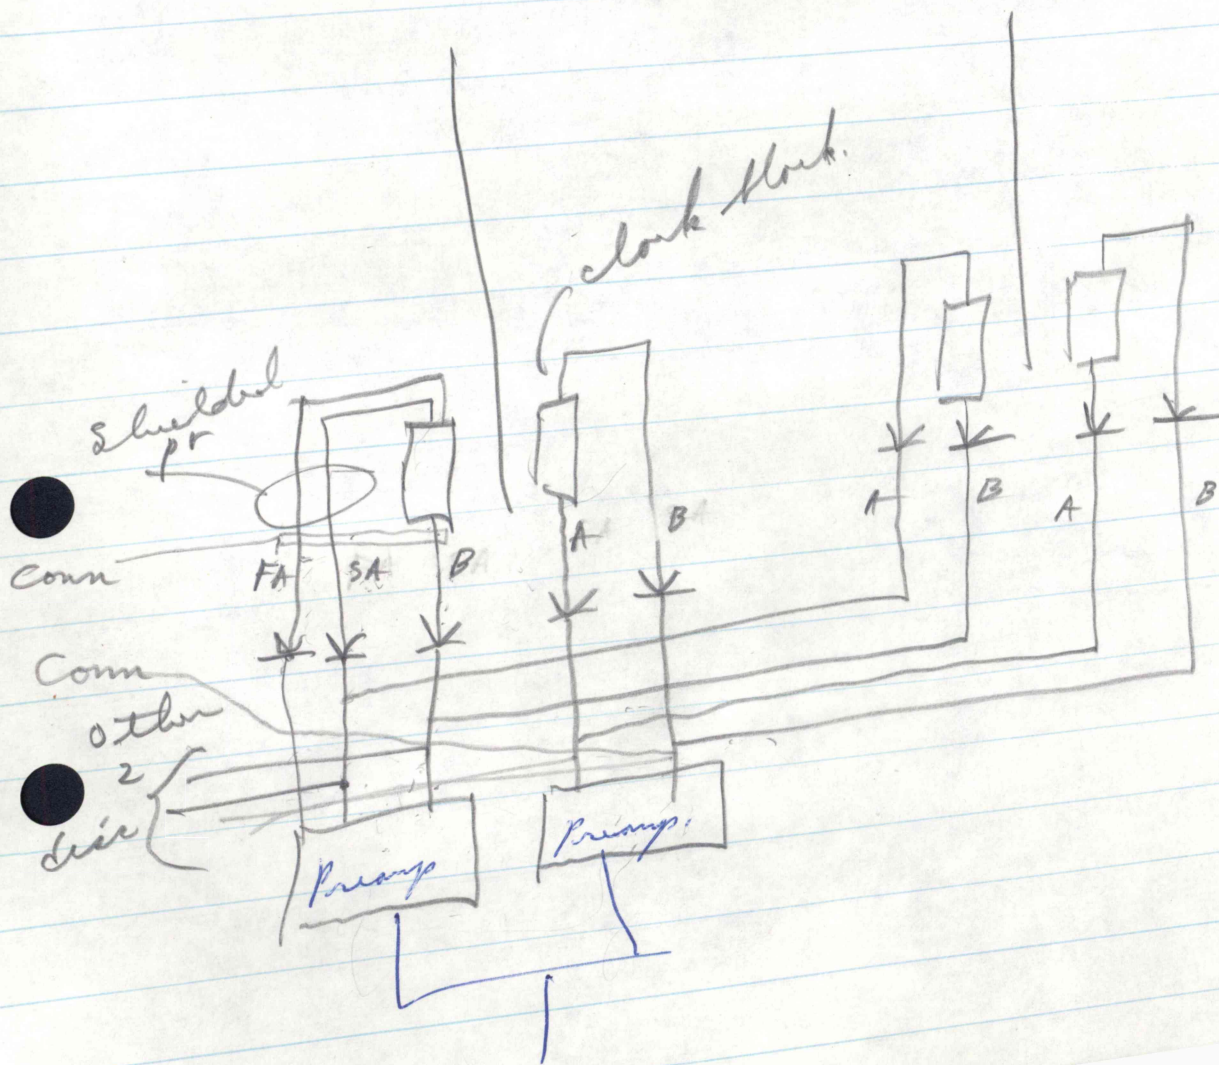 clock block.
Shielded
pr
Conn
FA SA B
A B
A B
A B
Conn
other
2
disc
Preamp
Preamp.